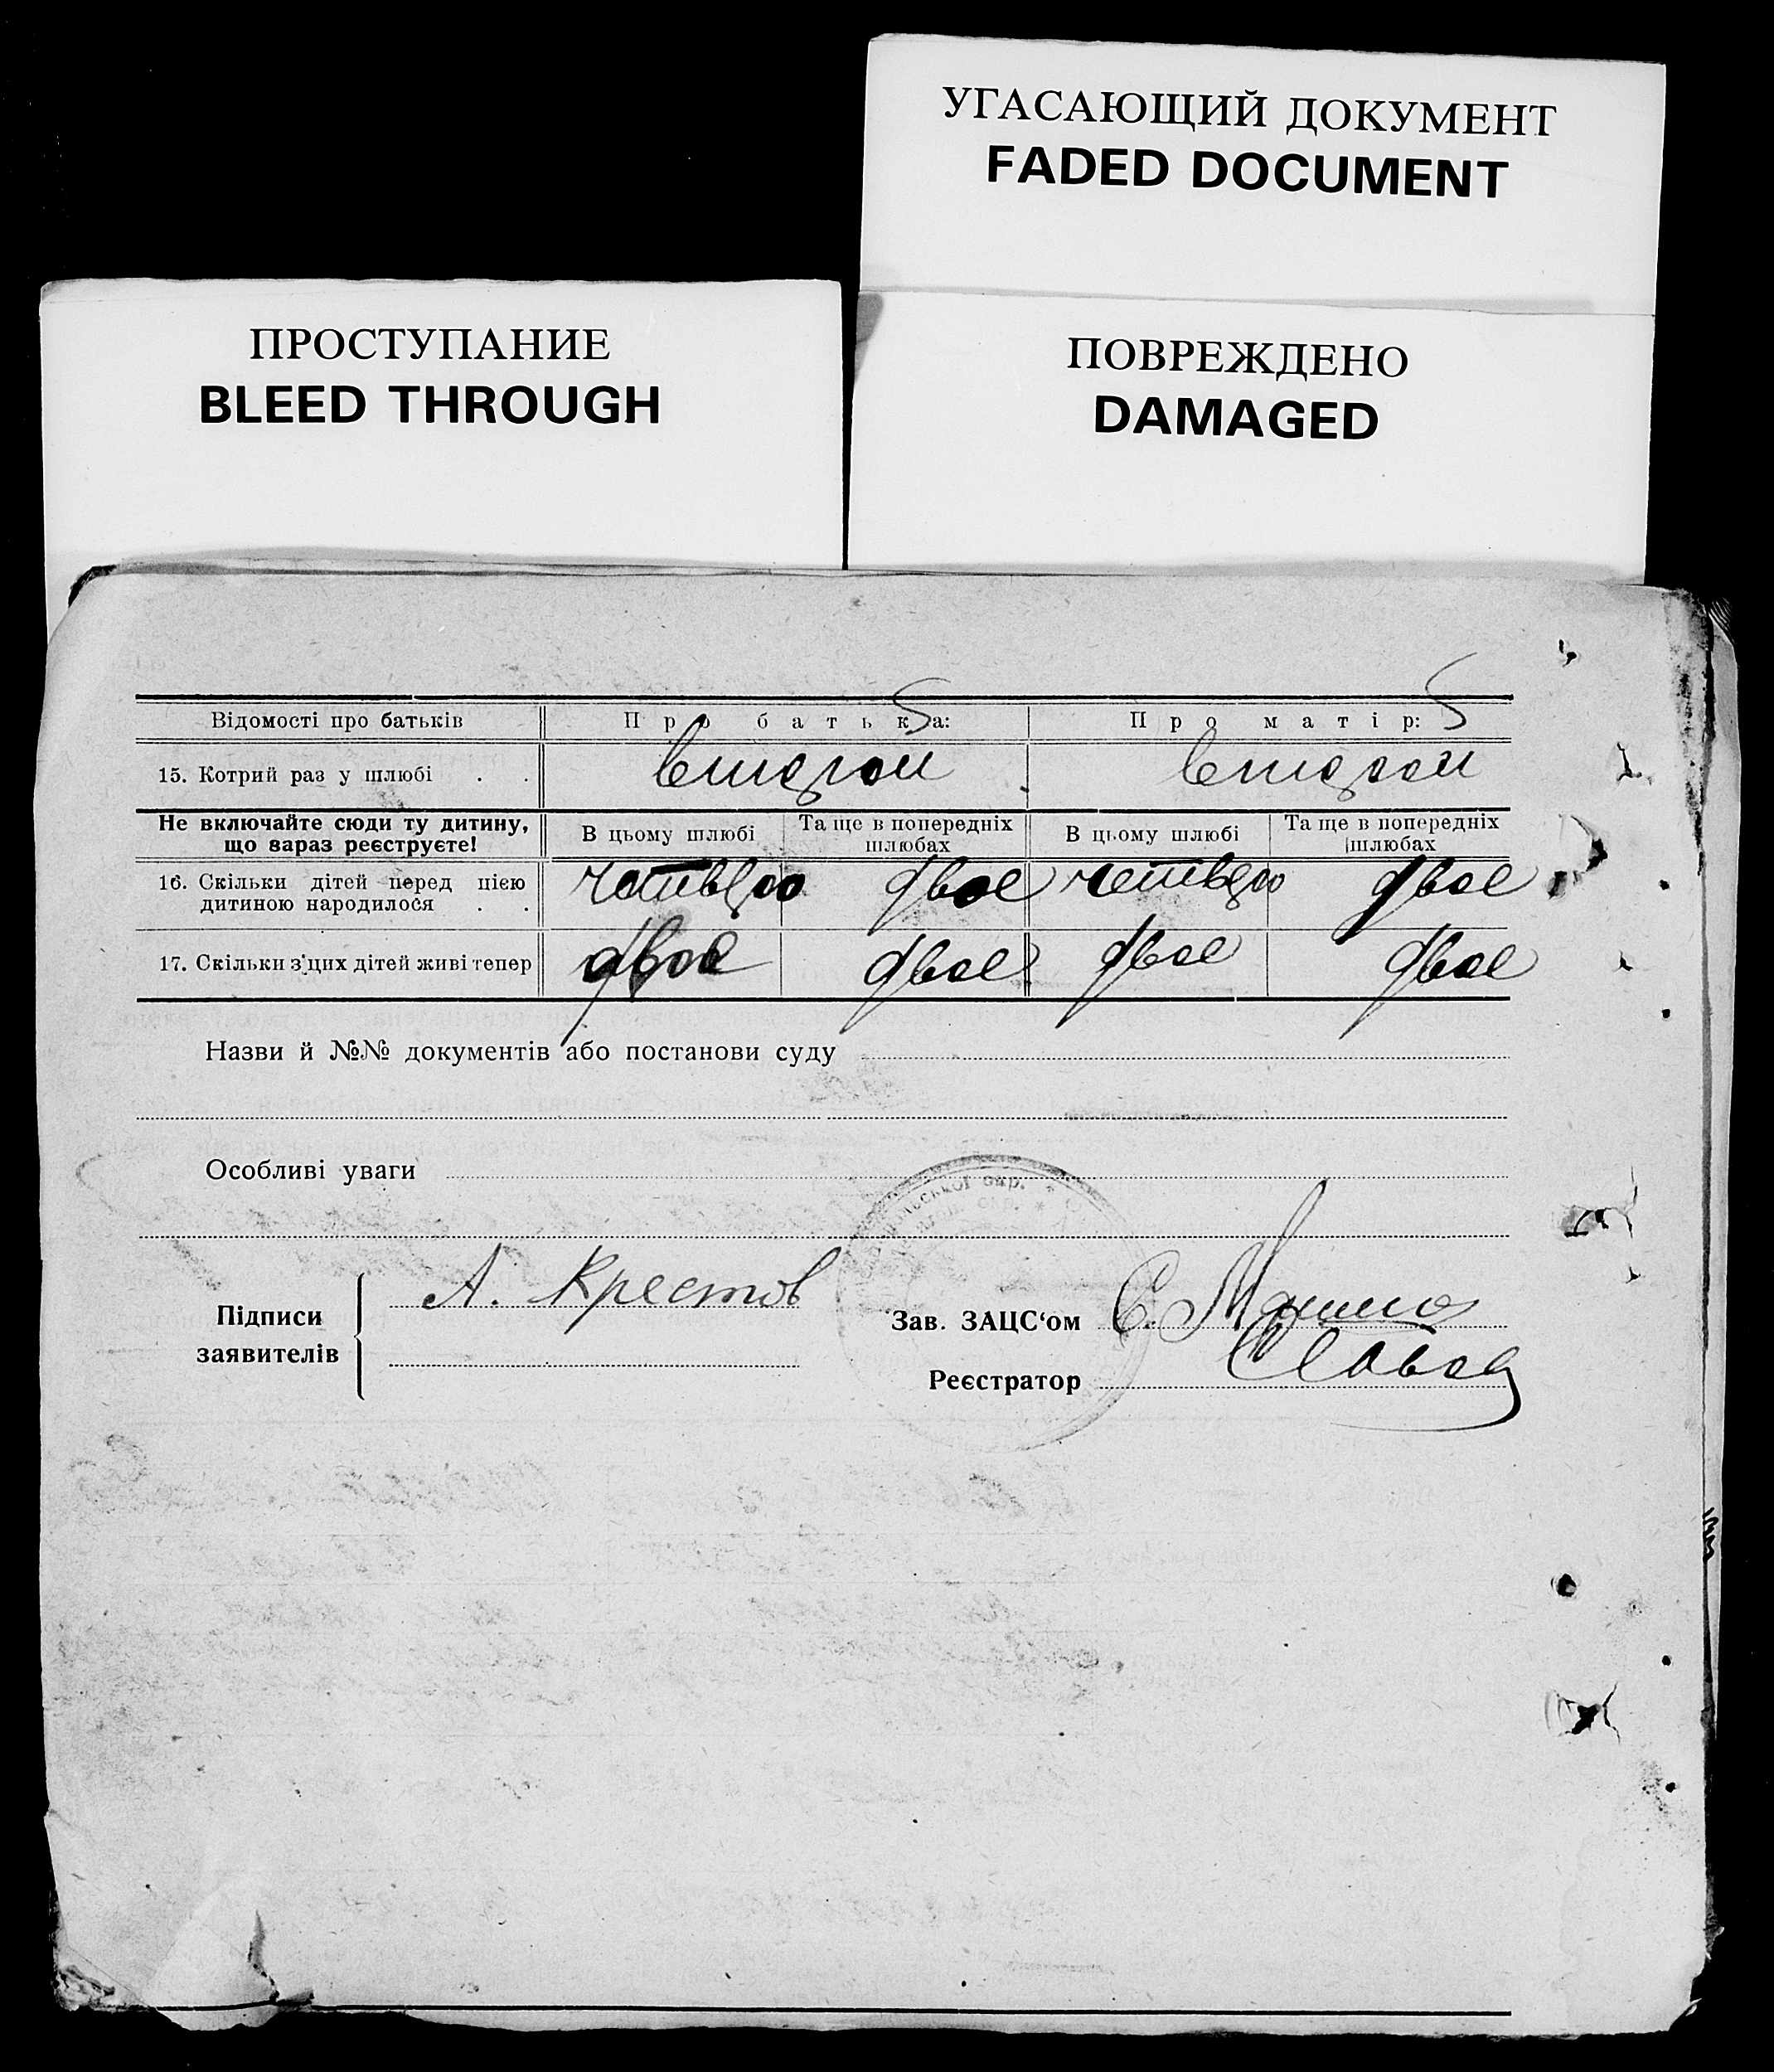 УГАСАЮЩИЙ ДОКУМЕНТ
FADED DOCUMENT
ПРОСТУПАНИЕ
BLEED THROUGH
ПОВРЕЖДЕНО
DAMAGED
Відомості про батьків Про батька: Про матір:
15. Котрий раз у шлюбі . . второй второй
Не включайте сюди ту дитину, що вараз реєструєте! В цьому шлюбі Та ще в попередніх шлюбах В цьому шлюбі Та ще в попередніх шлюбах
16. Скільки дітей перед цією дитиною народилося . . четверо двое четверо двое
17. Скільки з'цих дітей живі тепер двое двое двое двое
Назви й №№ документів або постанови суду
Особливі уваги
окр.
Підписи заявителів А. Крестов
Зав. ЗАЦС‘ом С.
Реєстратор